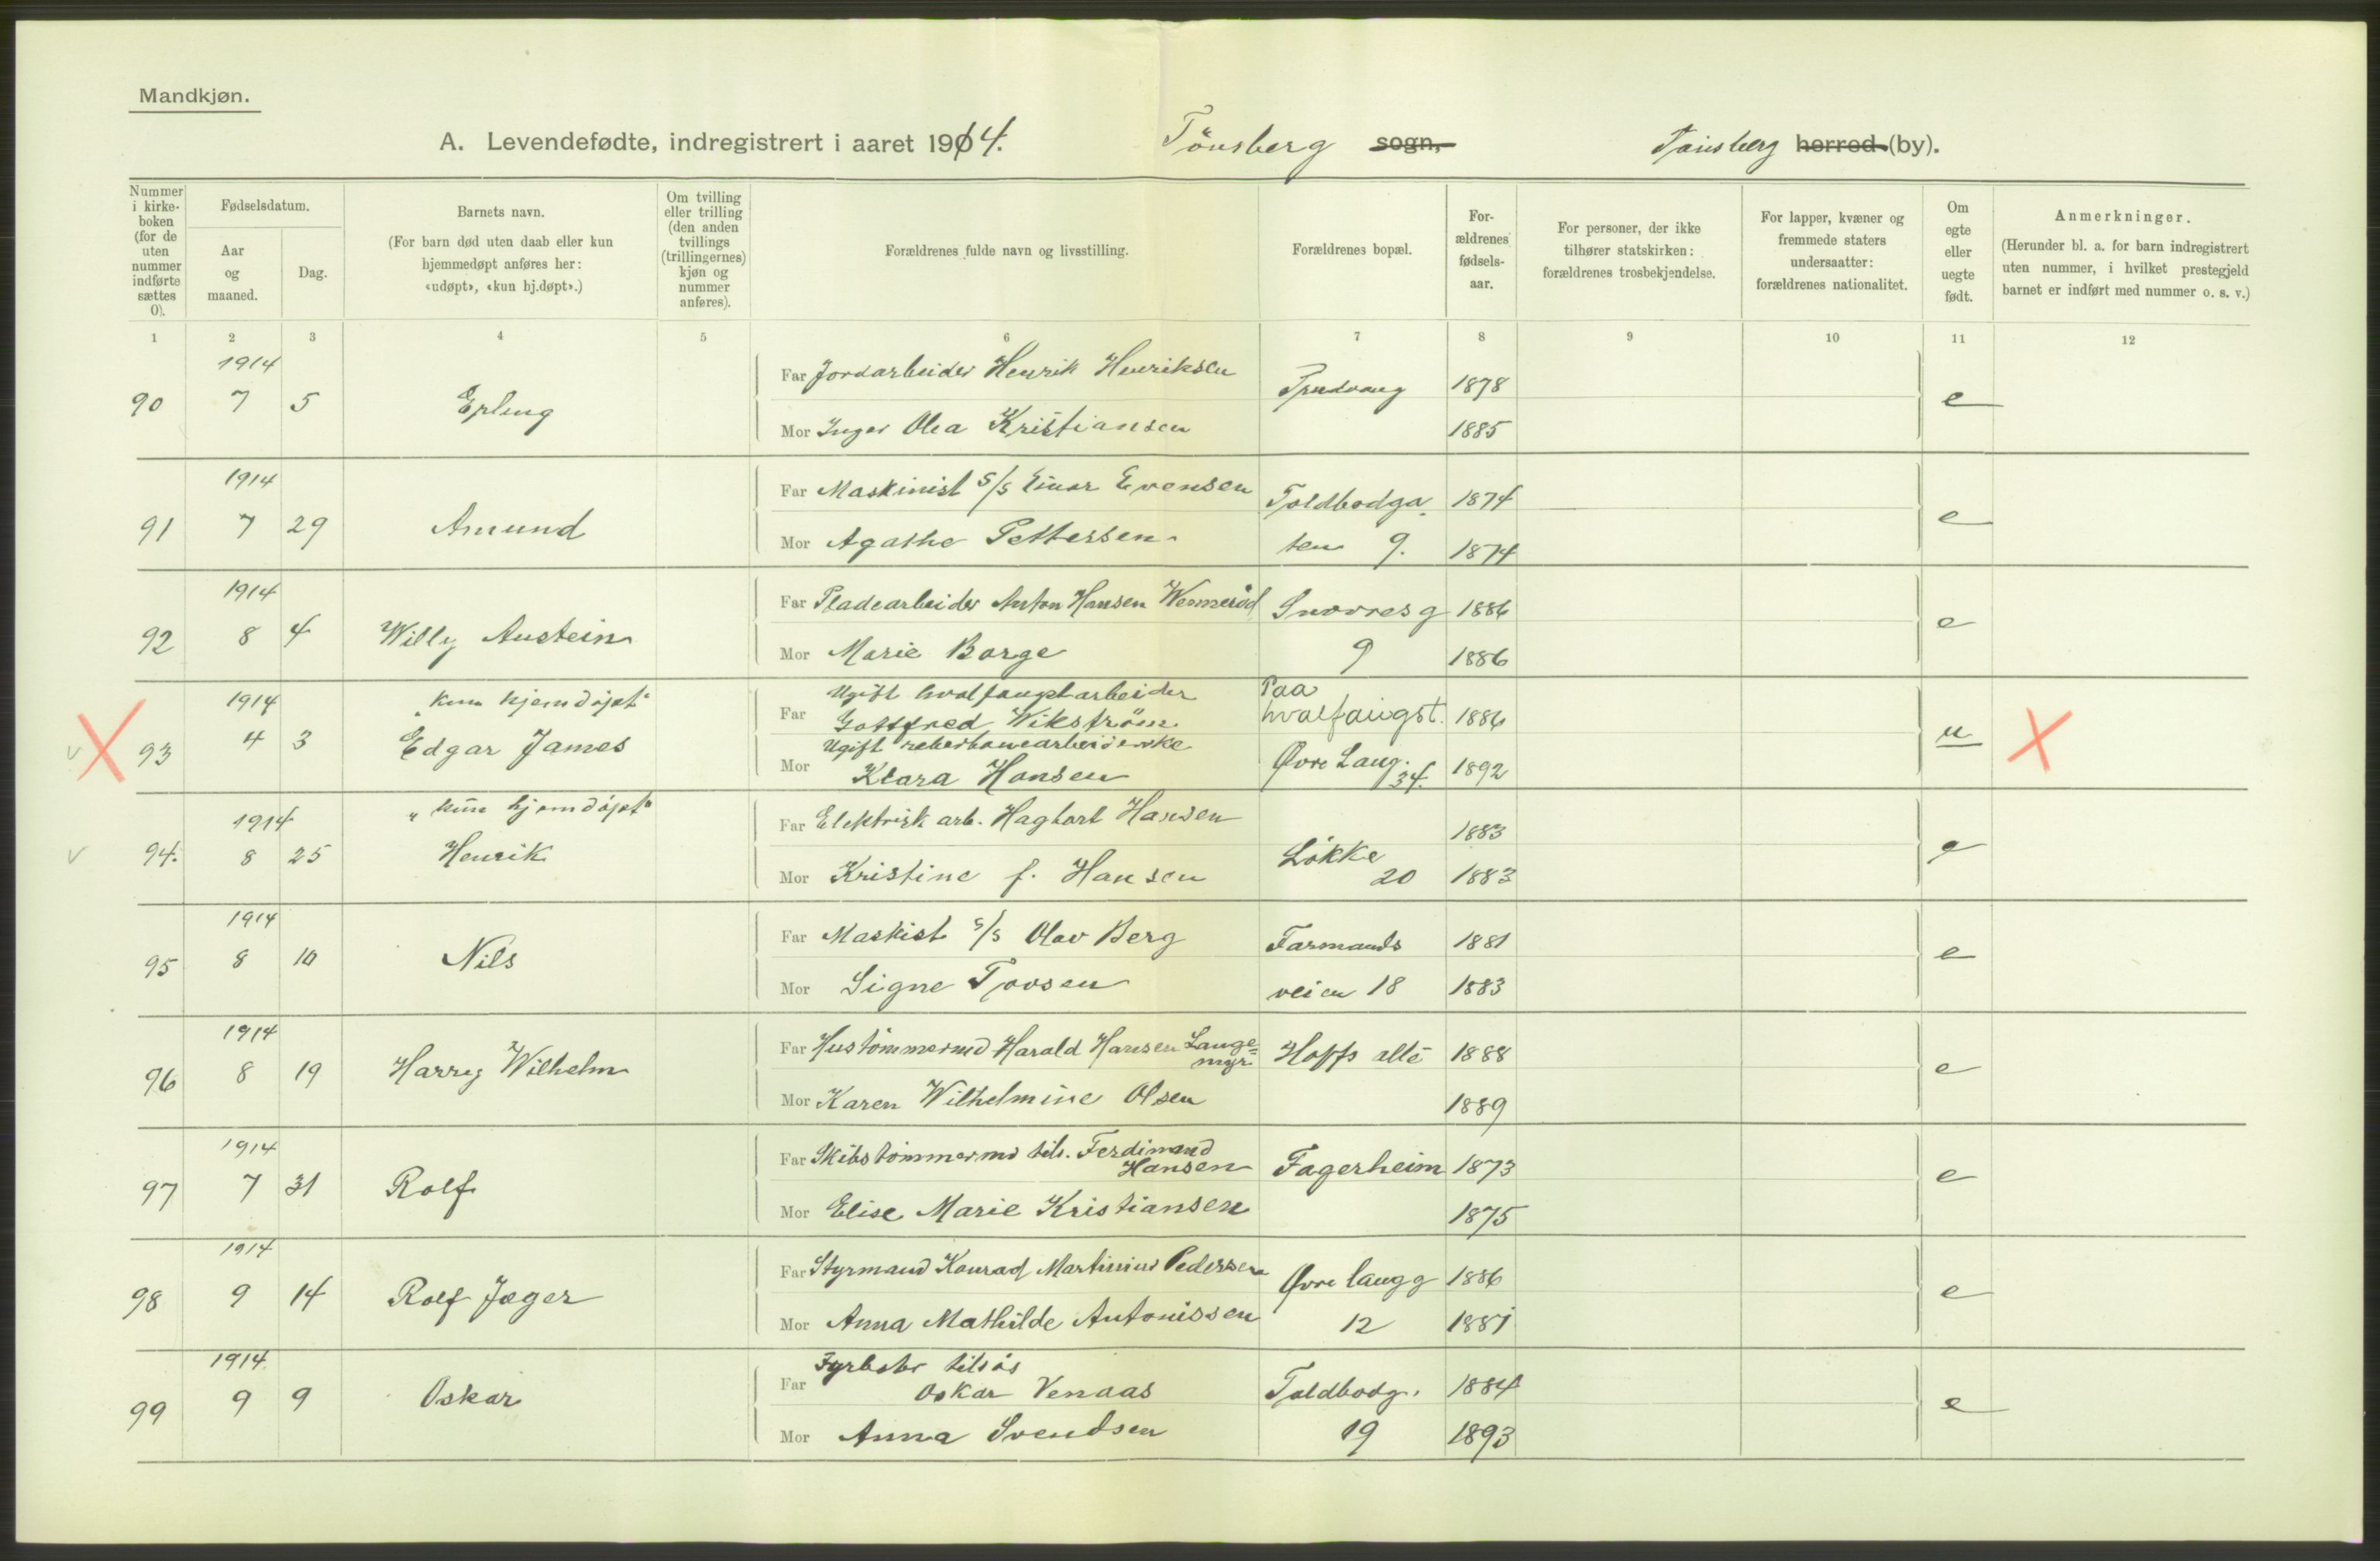 Mandkjøn.
A. Levendefødte, indregistrert i aaret 1914. Tönsberg sogn, Tönsberg herred (by).
Nummer i kirkeboken (for de uten nummer indførte sættes 0).
Fødselsdatum.
Aar og maaned.
Dag.
Barnets navn.
(For barn død uten daab eller kun hjemmedøpt anføres her: «udøpt», «kun hj.døpt».)
Om tvilling eller trilling (den anden tvillings (trillingernes) kjøn og nummer anføres).
Forældrenes fulde navn og livsstilling.
Forældrenes bopæl.
Forældrenes fødselsaar.
For personer, der ikke tilhører statskirken: forældrenes trosbekjendelse.
For lapper, kvæner og fremmede staters undersaatter: forældrenes nationalitet.
Om egte eller uegte født.
Anmerkninger.
(Herunder bl. a. for barn indregistrert uten nummer, i hvilket prestegjeld barnet er indført med nummer o. s. v.)
1 2 3 4 5 6 7 8 9 10 11 12
1914
Far Jordarbeider Henrik Henriksen 1878
90 7 5 Erling Trudvang e
Mor Inger Olea Kristiansen 1885
1914
Far Maskinist S/S Einar Evensen Toldbodga 1874
91 7 29 Amund e
Mor Agathe Pettersen ten 9. 1874
1914
Far Pladearbeider Anton Hansen Wemmeröd Snorresg 1886
92 8 4 Willy Austein e
Mor Marie Borge 9 1886
1914 "kun hjemdöpt"
Far Ugift hvalfangstarbeider Gottfred Wikström Paa hvalfangst. 1886
93 4 3 Edgar James u
Mor Ugift reberbanearbeiderske Klara Hansen Øvre Lang. 34. 1892
1914 "kun hjemdöpt"
Far Elektrisk arb. Hagbart Hansen 1883
94. 8 25 Henrik Lökke 20 e
Mor Kristine f. Hansen 1883
1914
Far Maskist S/S Olav Berg Farmands 1881
95 8 10 Nils e
Mor Signe veien 18 1883
1914
Far Hustömmermd Harald Hansen Lange=myr Hoffs allé 1888
96 8 19 Harry Wilhelm e
Mor Karen Wilhelmine Olsen 1889
1914
Far Skibstömmermd tils. Ferdinand Hansen Fagerheim 1873
97 7 31 Rolf e
Mor Elise Marie Kristiansen 1875
1914
Far Styrmand Konrad Martinius Pedersen Øvre langg 1886
98 9 14 Rolf Jæger e
Mor Anna Mathilde Antonissen 12 1881
1914
Far Fyrböter tilsös Oskar Venaas Toldbodg. 1884
99 9 9 Oskar e
Mor Anna Svendsen 19 1893